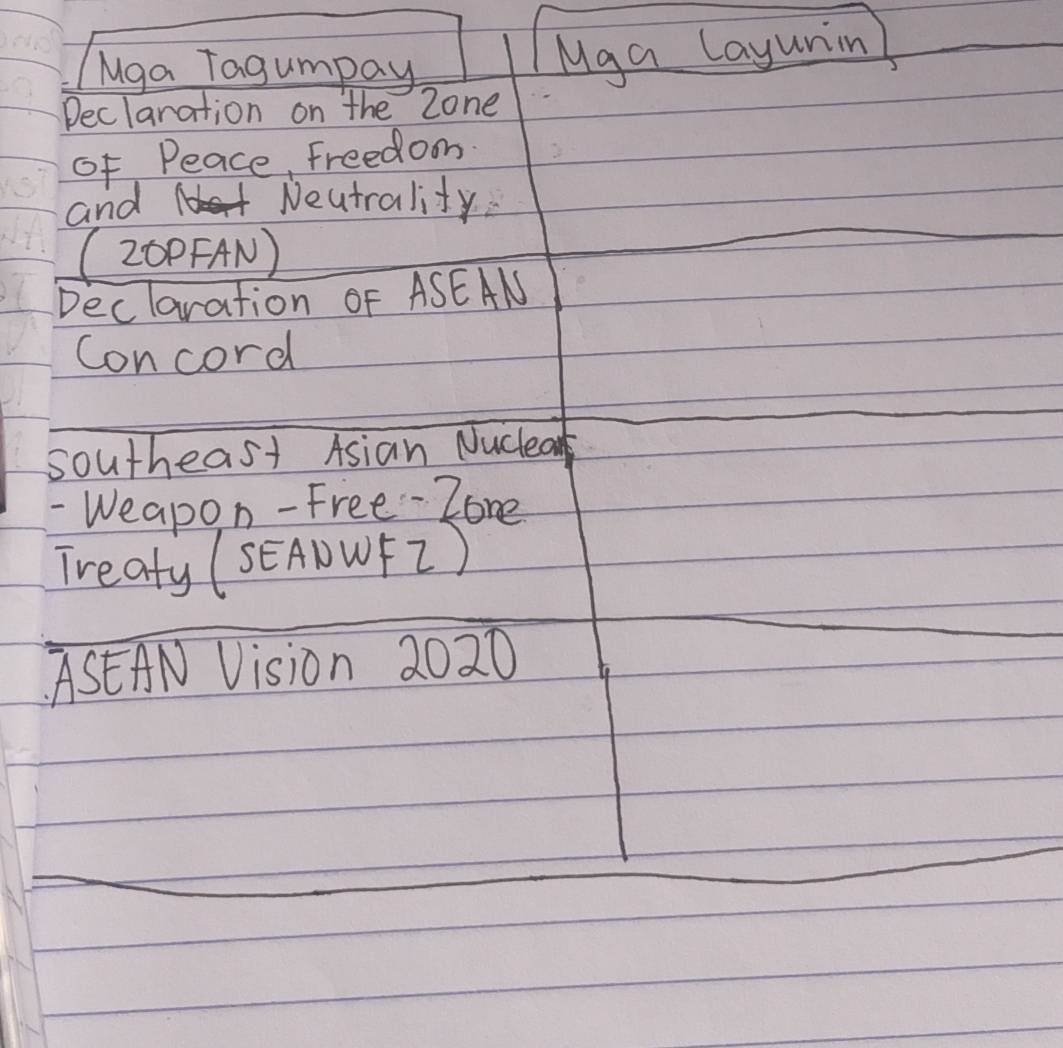 Mga Tagumpay
Mga Layunin
Declaration on the Zone
of Peace, Freedom
and Neutrality
(ZOPFAN)
Declaration of ASEAN
Concord
Southeast Asian Nuclear
- Weapon - Free - Zone
Treaty (SEANWFZ)
ASEAN Vision 2020